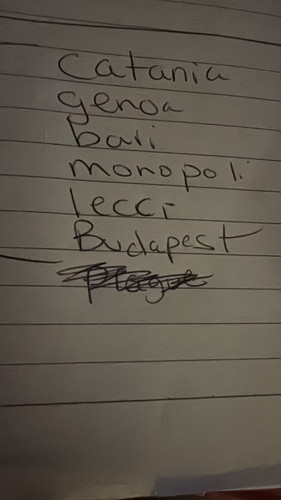 Catania
genoa
bari
monopoli
lecci
Budapest